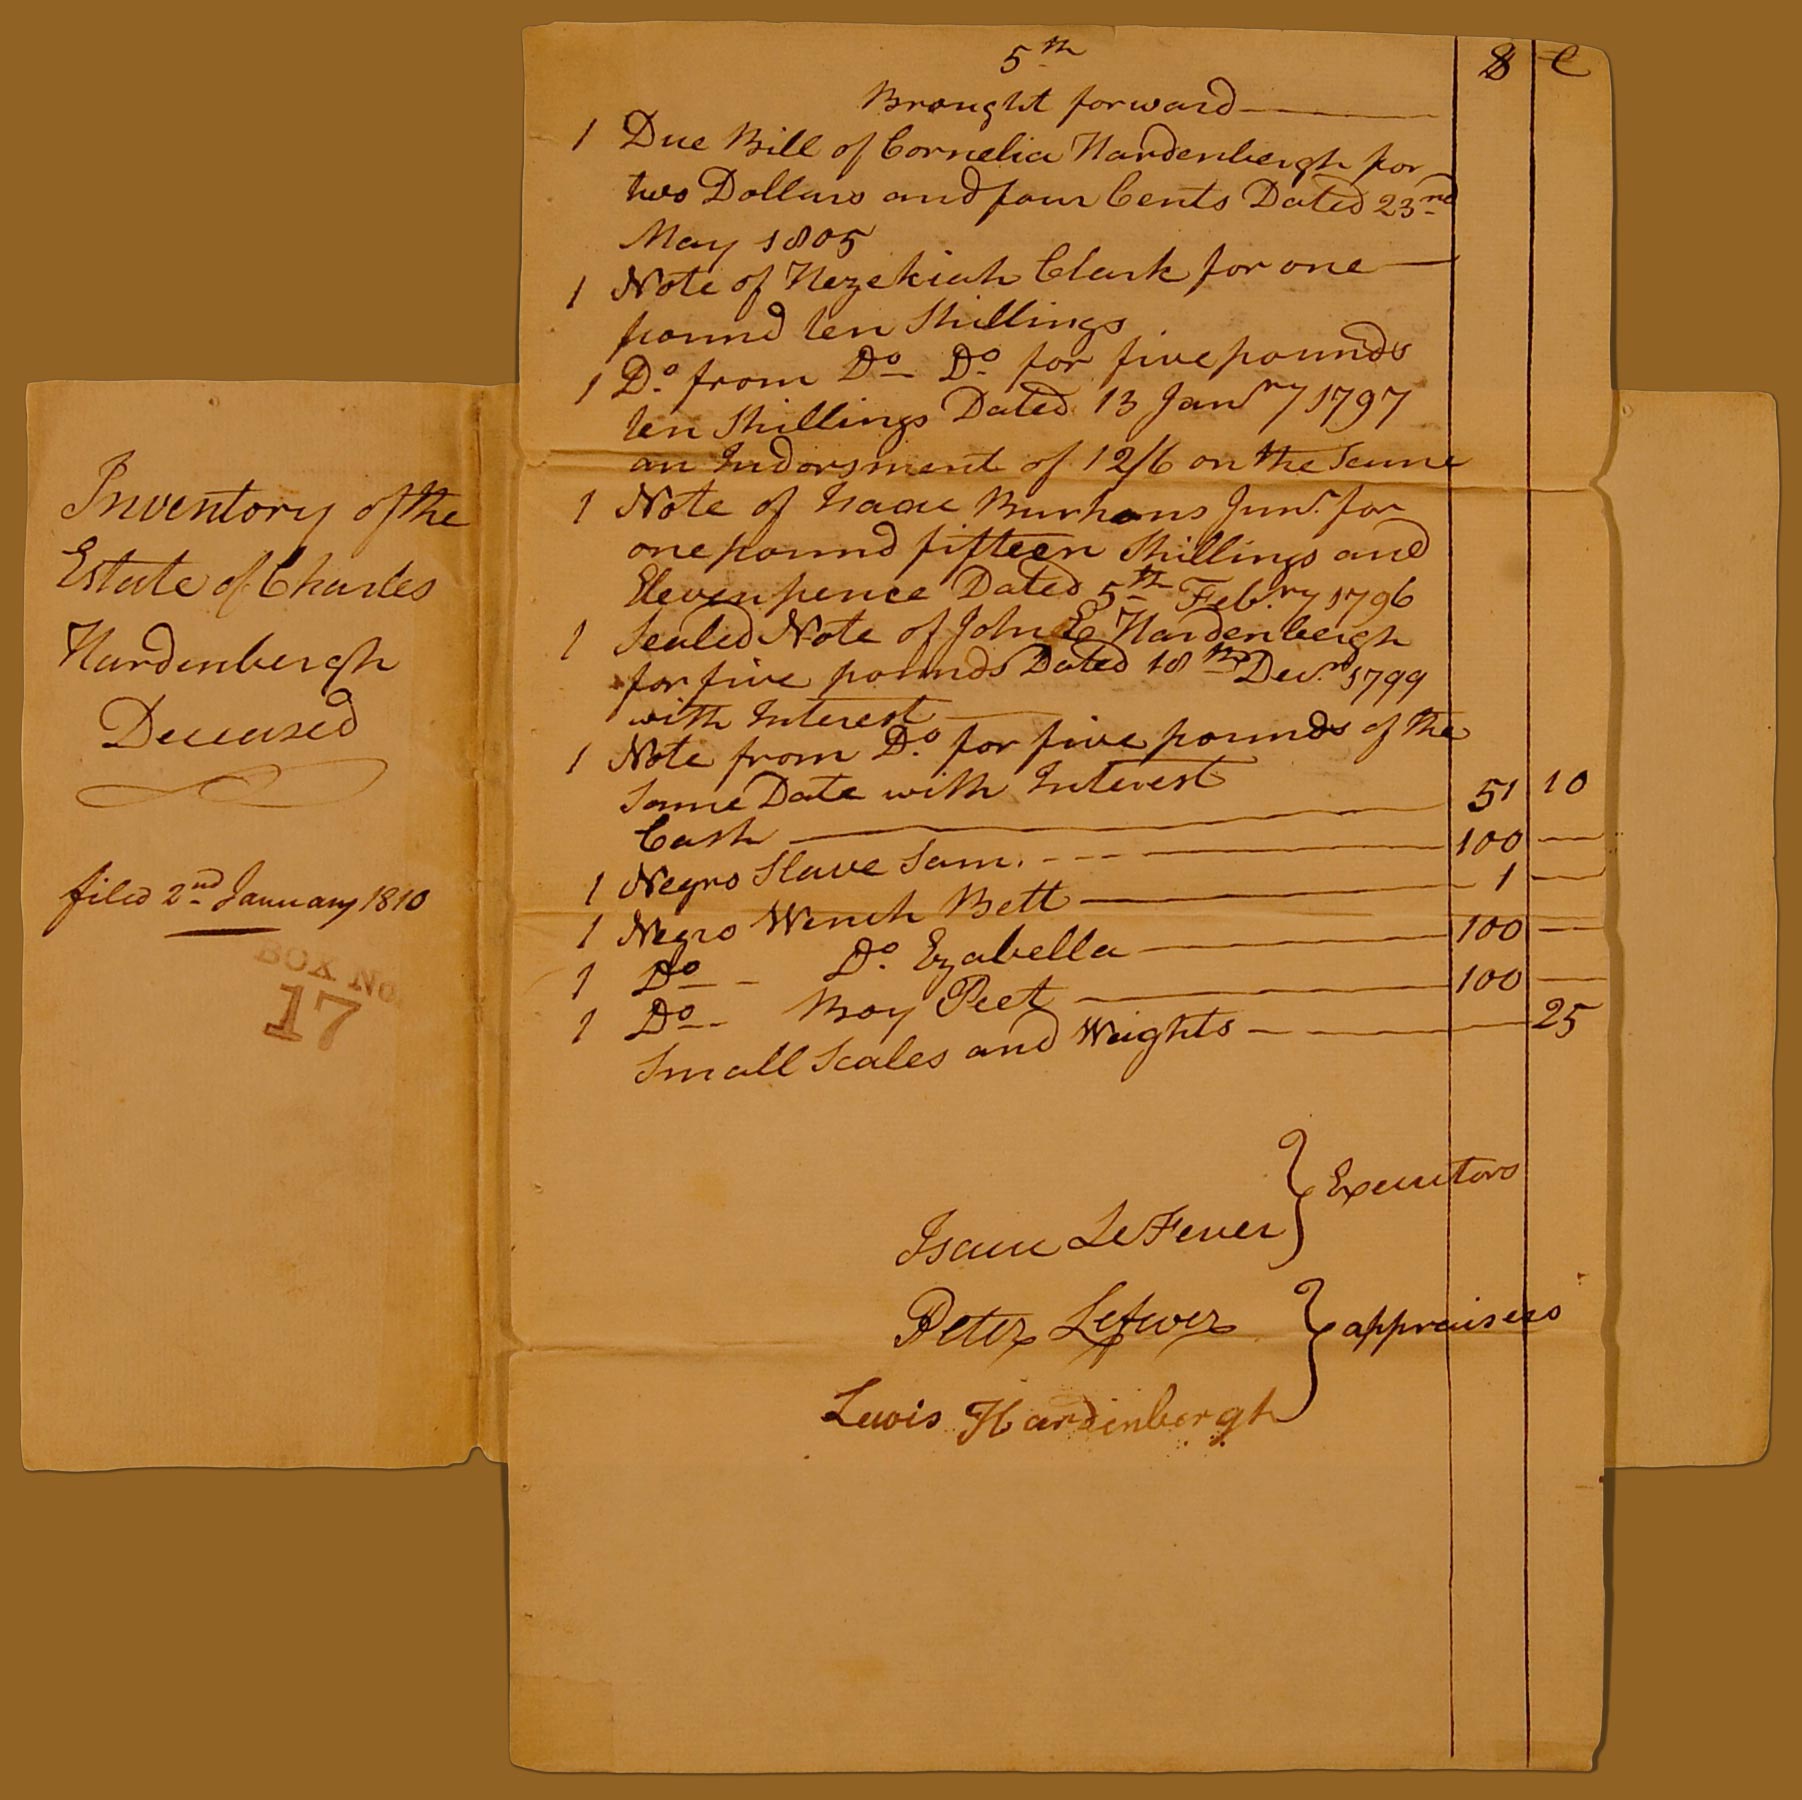 Inventory of the
Estate of Charles
Hardenbergh
Deceased
filed 2nd January 1810
BOX No.
17
5th
$ C
Brought forward
1 Due Bill of Cornelia Hardenbergh for
two Dollars and four Cents Dated 23rd
May 1805
1 Note of Hezekiah Clark for one
pound ten Shillings
1 Do. from Do Do. for five pounds
ten Shillings Dated 13 Janry 1797
an Indorsment of 12/6 on the Same
1 Note of Isaac Burhans Junr. for
one pound fifteen Shillings and
Eleven pence Dated 5th Feb.ry 1796
1 Sealed Note of John E Hardenbergh
for five pounds Dated 18th Decr. 1799
with Interest
1 Note from Do. for five pounds of the
Same Date with Interest
Cash 51 10
1 Negro Slave Sam. 100
1 Negro Wench Bett 1
1 Do Do. Ezabella 100
1 Do Boy Peet 100
Small Scales and Weights 25
Executors
Isaac LeFever
Peter Lefever
appraisers
Lewis Hardenbergh